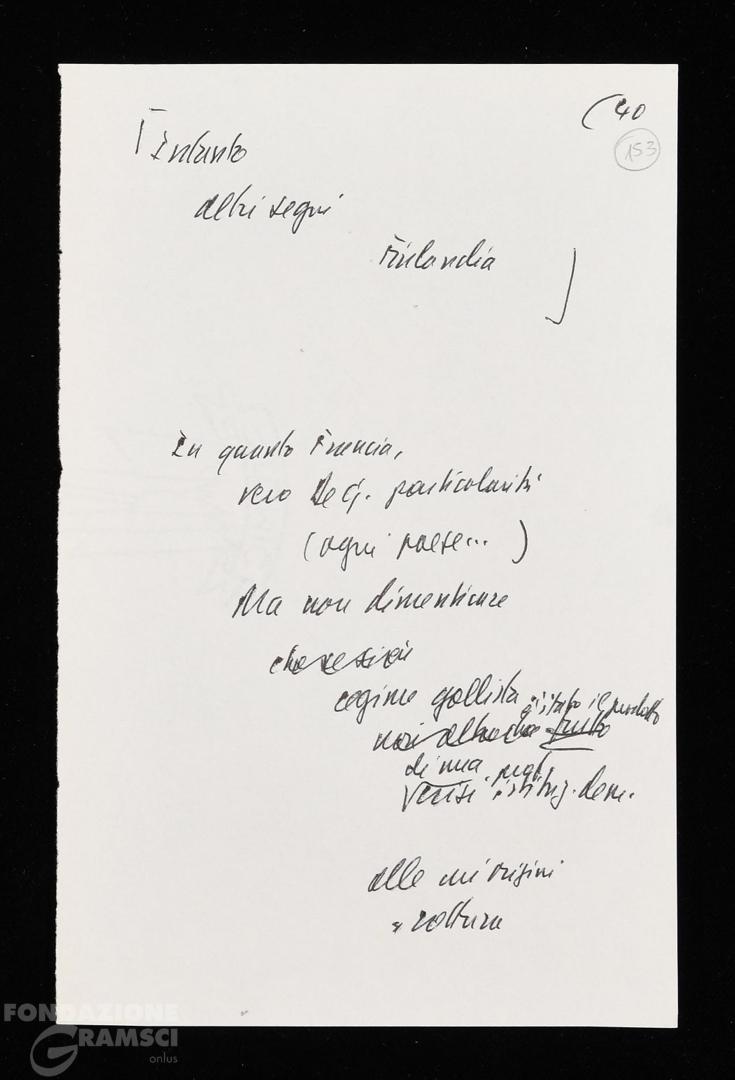 (40
153
Intanto
altri segni
Finlandia
In quanto Francia,
vero De G. particolarità
(ogni paese... )
Ma non dimenticare
regime gollista è stato il prodotto
non altro che frutto
di una
crisi istituz. dem.
alle cui origini
rottura
FONDAZIONE
GRAMSCI
onlus